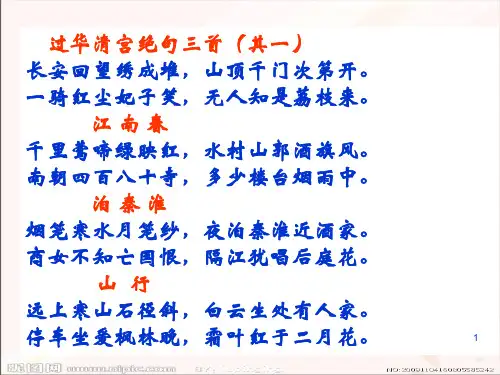 过华清宫绝句三首（其一）
长安回望绣成堆，山顶千门次第开。
一骑红尘妃子笑，无人知是荔枝来。
江南春
千里莺啼绿映红，水村山郭酒旗风。
南朝四百八十寺，多少楼台烟雨中。
泊秦淮
烟笼寒水月笼纱，夜泊秦淮近酒家。
商女不知亡国恨，隔江犹唱后庭花。
山行
远上寒山石径斜，白云生处有人家。
停车坐爱枫林晚，霜叶红于二月花。
1